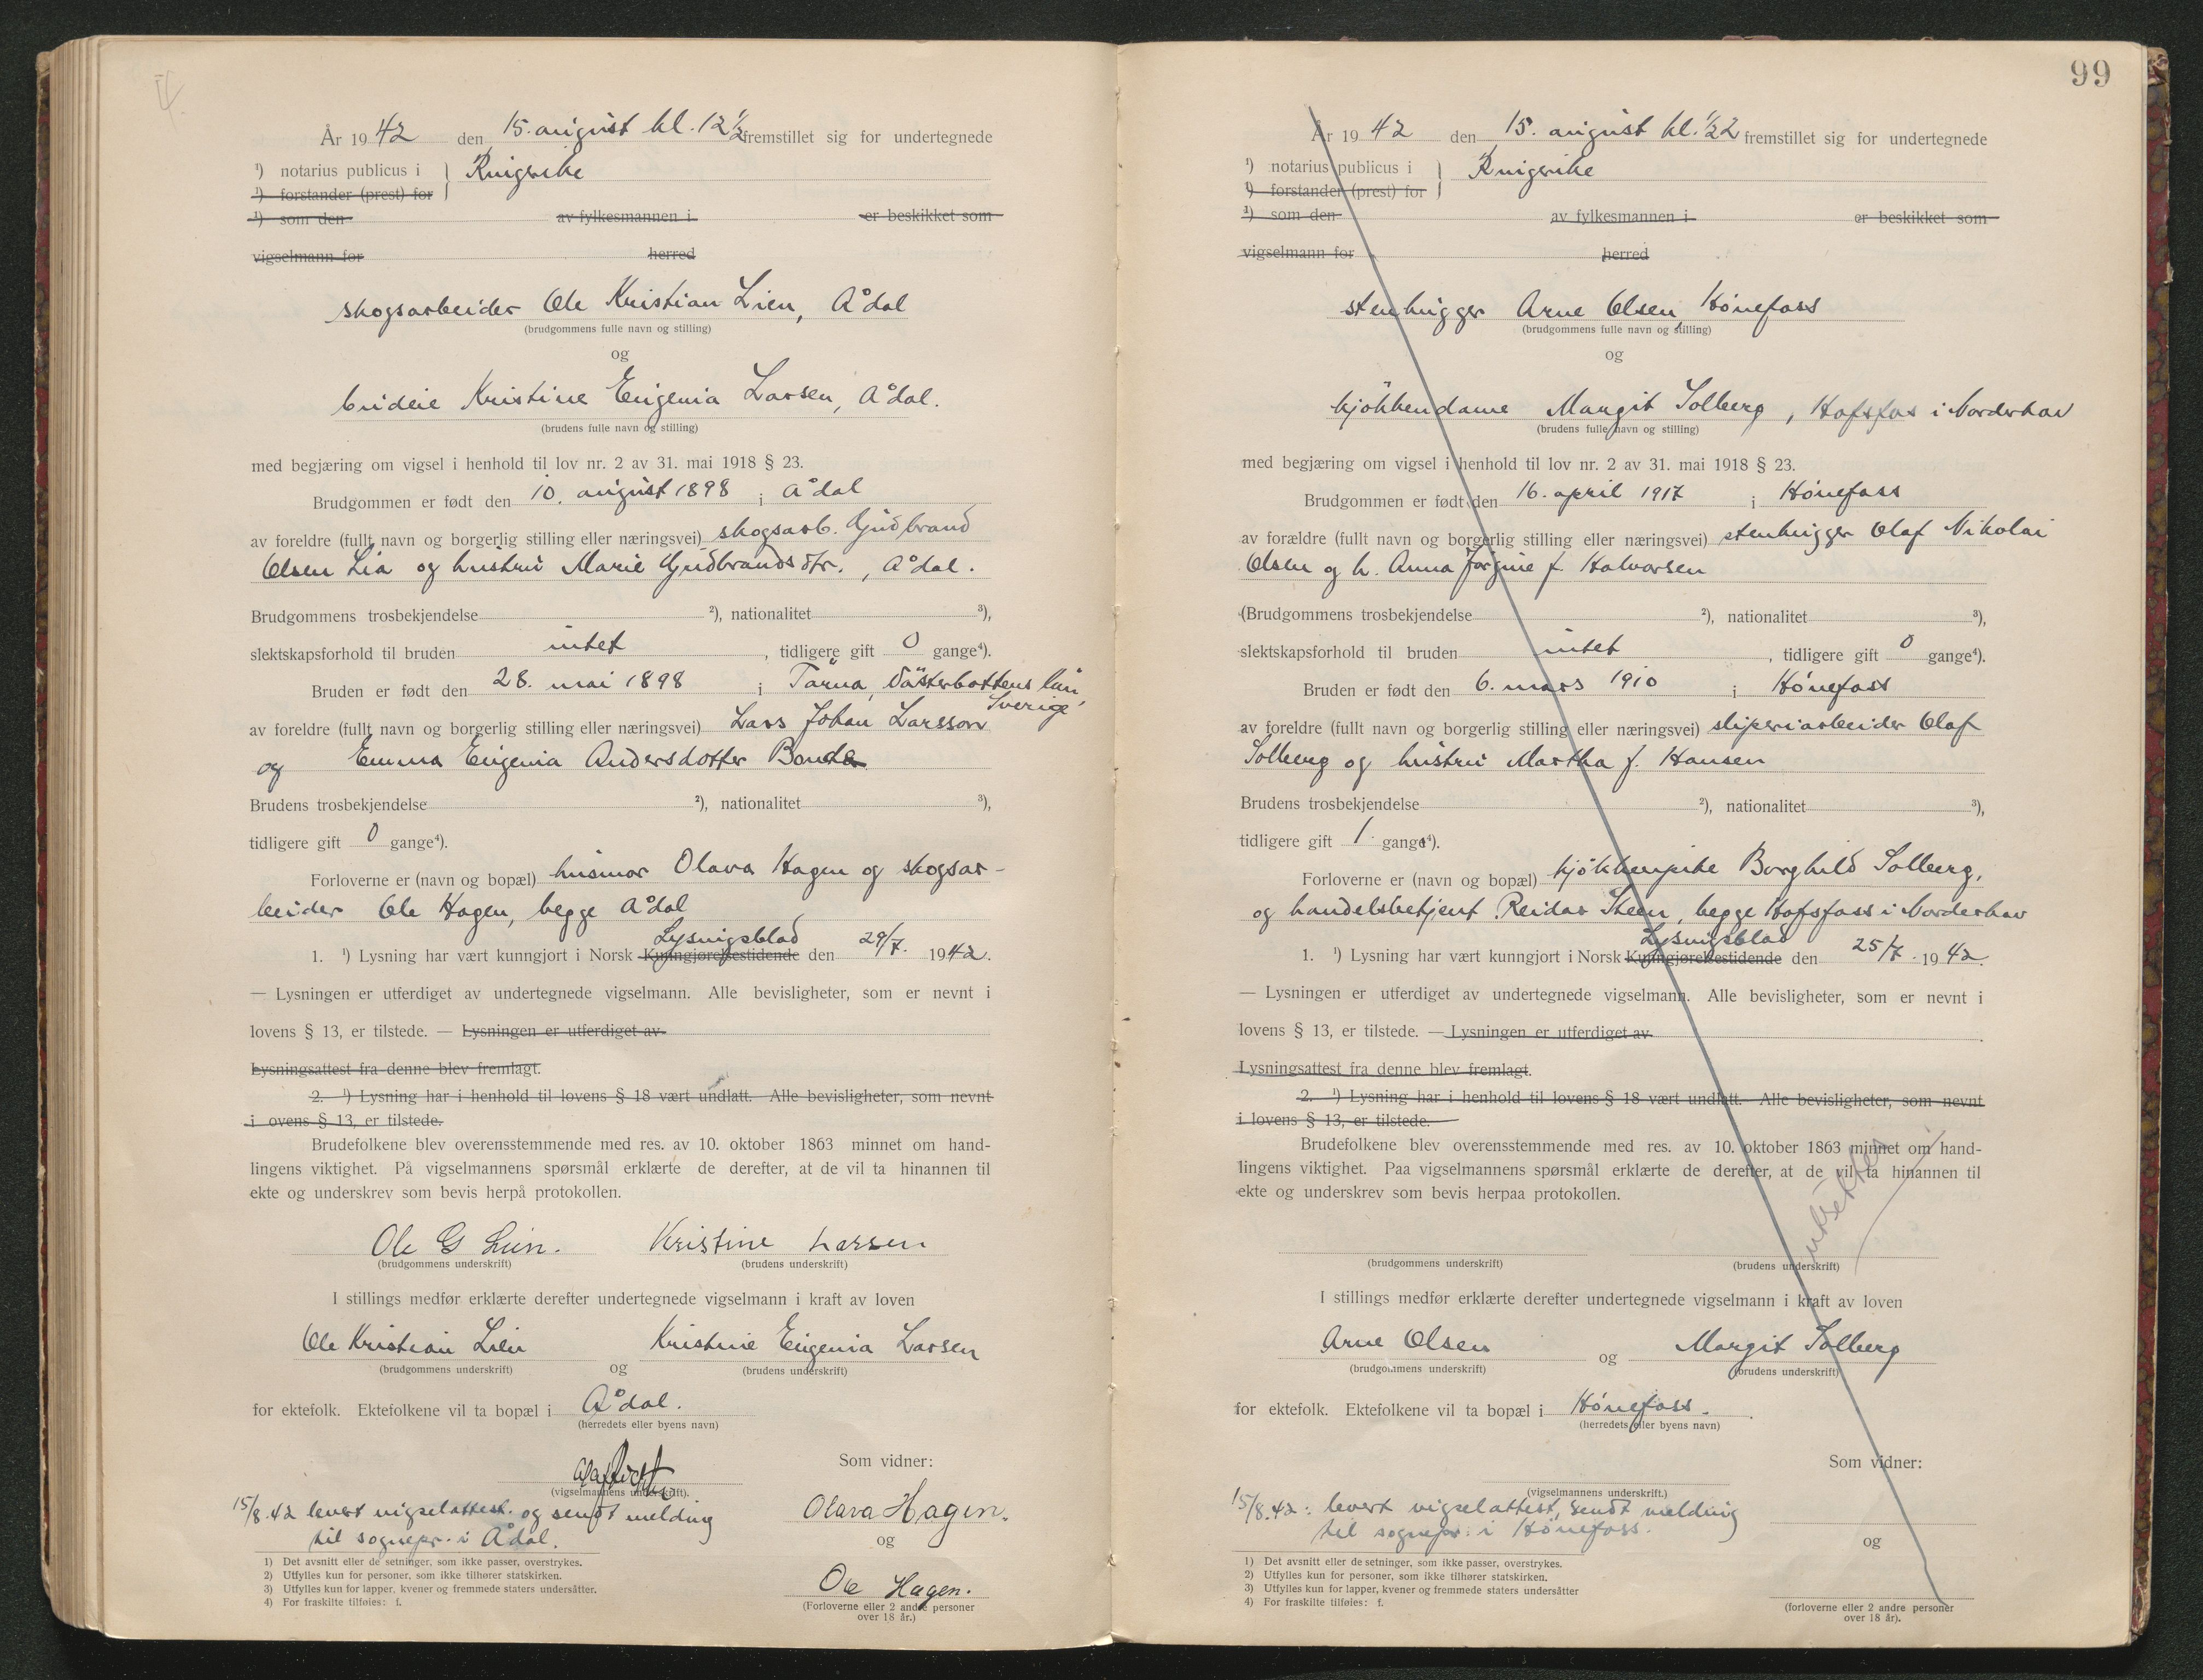 År 1942 den 15. august kl. 12 1/2 fremstillet sig for undertegnede
¹) notarius publicus i } Ringerike
¹) forstander (prest) for
¹) som den av fylkesmannen i er beskikket som
vigselmann for herred
skogsarbeider Ole Kristian Lien, Ådal
(brudgommens fulle navn og stilling)
og
budeie Kristine Eugenia Larsen, Ådal.
(brudens fulle navn og stilling)
med begjæring om vigsel i henhold til lov nr. 2 av 31. mai 1918 § 23.
Brudgommen er født den 10. august 1898 i Ådal
av foreldre (fullt navn og borgerlig stilling eller næringsvei) skogsarb. Gudbrand
Olsen Lia og hustru Marie Gudbrandsdtr., Ådal.
Brudgommens trosbekjendelse ²), nationalitet ³),
slektskapsforhold til bruden intet, tidligere gift 0 gange⁴).
Bruden er født den 28. mai 1898 i Tärna, Västerbottens län,
Sverige
av foreldre (fullt navn og borgerlig stilling eller næringsvei) Lars Johan Larsson
og Emma Eugenia Andersdotter
Brudens trosbekjendelse ²), nationalitet ³),
tidligere gift 0 gange⁴).
Forloverne er (navn og bopæl) husmor Olava Hagen og skogsar-
beider Ole Hagen, begge Ådal
Lysingsblad
1. ¹) Lysning har vært kunngjort i Norsk Kunngjørelsestidende den 29/7. 1942.
— Lysningen er utferdiget av undertegnede vigselmann. Alle bevisligheter, som er nevnt i
lovens § 13, er tilstede. — Lysningen er utferdiget av
Lysningsattest fra denne blev fremlagt.
2. ¹) Lysning har i henhold til lovens § 18 vært undlatt. Alle bevisligheter, som nevnt
i ovens § 13, er tilstede.
Brudefolkene blev overensstemmende med res. av 10. oktober 1863 minnet om hand-
lingens viktighet. På vigselmannens spørsmål erklærte de derefter, at de vil ta hinannen til
ekte og underskrev som bevis herpå protokollen.
Ole G Lien. Kristine Larsen
(brudgommens underskrift) (brudens underskrift)
I stillings medfør erklærte derefter undertegnede vigselmann i kraft av loven
Ole Kristian Lien og Kristine Eugenia Larsen
(brudgommens underskrift) (brudens underskrift)
for ektefolk. Ektefolkene vil ta bopæl i Ådal.
(herredets eller byens navn)
Som vidner:
(vigselmannens underskrift).
15/8.42 levert vigselattest og sendt melding
til sognepr. i Ådal.
Olava Hagen.
og
Ole Hagen.
(Forloverne eller 2 andre personer
over 18 år.)
1) Det avsnitt eller de setninger, som ikke passer, overstrykes.
2) Utfylles kun for personer, som ikke tilhører statskirken.
3) Utfylles kun for lapper, kvener og fremmede staters undersåtter.
4) For fraskilte tilføies: f.
99
År 1942 den 15. august kl. 1/2 2 fremstillet sig for undertegnede
¹) notarius publicus i } Ringerike
¹) forstander (prest) for
¹) som den av fylkesmannen i er beskikket som
vigselmann for herred
stenhugger Arne Olsen, Hønefoss
(brudgommens fulle navn og stilling)
og
kjøkkendame Margit Solberg, Hofsfos i Norderhov
(brudens fulle navn og stilling)
med begjæring om vigsel i henhold til lov nr. 2 av 31. mai 1918 § 23.
Brudgommen er født den 16. april 1917 i Hønefoss
av forældre (fullt navn og borgerlig stilling eller næringsvei) stenhugger Olaf Nikolai
Olsen og h. Anna Jørgine f. Halvorsen
(Brudgommens trosbekjendelse ²), nationalitet ³),
slektskapsforhold til bruden intet, tidligere gift 0 gange⁴).
Bruden er født den 6. mars 1910 i Hønefoss
av foreldre (fullt navn og borgerlig stilling eller næringsvei) sliperiarbeider Olaf
Solberg og hustru Martha f. Hansen
Brudens trosbekjendelse ²), nationalitet ³),
tidligere gift 1 gang⁴).
Forloverne er (navn og bopæl) kjøkkenpike Borghild Solberg,
og handelsbetjent Reidar Steen, begge Hofsfoss i Norderhov
Lysingsblad
1. ¹) Lysning har vært kunngjort i Norsk Kunngjørelsestidende den 25/7. 1942.
— Lysningen er utferdiget av undertegnede vigselmann. Alle bevisligheter, som er nevnt i
lovens § 13, er tilstede. — Lysningen er utferdiget av
Lysningsattest fra denne blev fremlagt.
2. ¹) Lysning har i henhold til lovens § 18 vært undlatt. Alle bevisligheter, som nevnt
i lovens § 13, er tilstede.
Brudefolkene blev overensstemmende med res. av 10. oktober 1863 minnet om hand-
lingens viktighet. Paa vigselmannens spørsmål erklærte de derefter, at de vil ta hinannen til
ekte og underskrev som bevis herpaa protokollen.
(brudgommens underskrift) (brudens underskrift)
I stillings medfør erklærte derefter undertegnede vigselmann i kraft av loven
Arne Olsen og Margit Solberg
(brudgommens underskrift) (brudens underskrift)
for ektefolk. Ektefolkene vil ta bopæl i Hønefoss.
(herredets eller byens navn)
Som vidner:
(vigselmannens underskrift.)
15/8.42: levert vigselattest, sendt melding
til sognepr. i Hønefoss.
og
(forloverne eller 2 andre personer
over 18 år).
1) Det avsnitt eller de setninger, som ikke passer, overstrykes.
2) Utfylles kun for personer, som ikke tilhører statskirken.
3) Utfylles kun for lapper, kvener og fremmede staters undersåtter
4) For fraskilte tilføies: f.